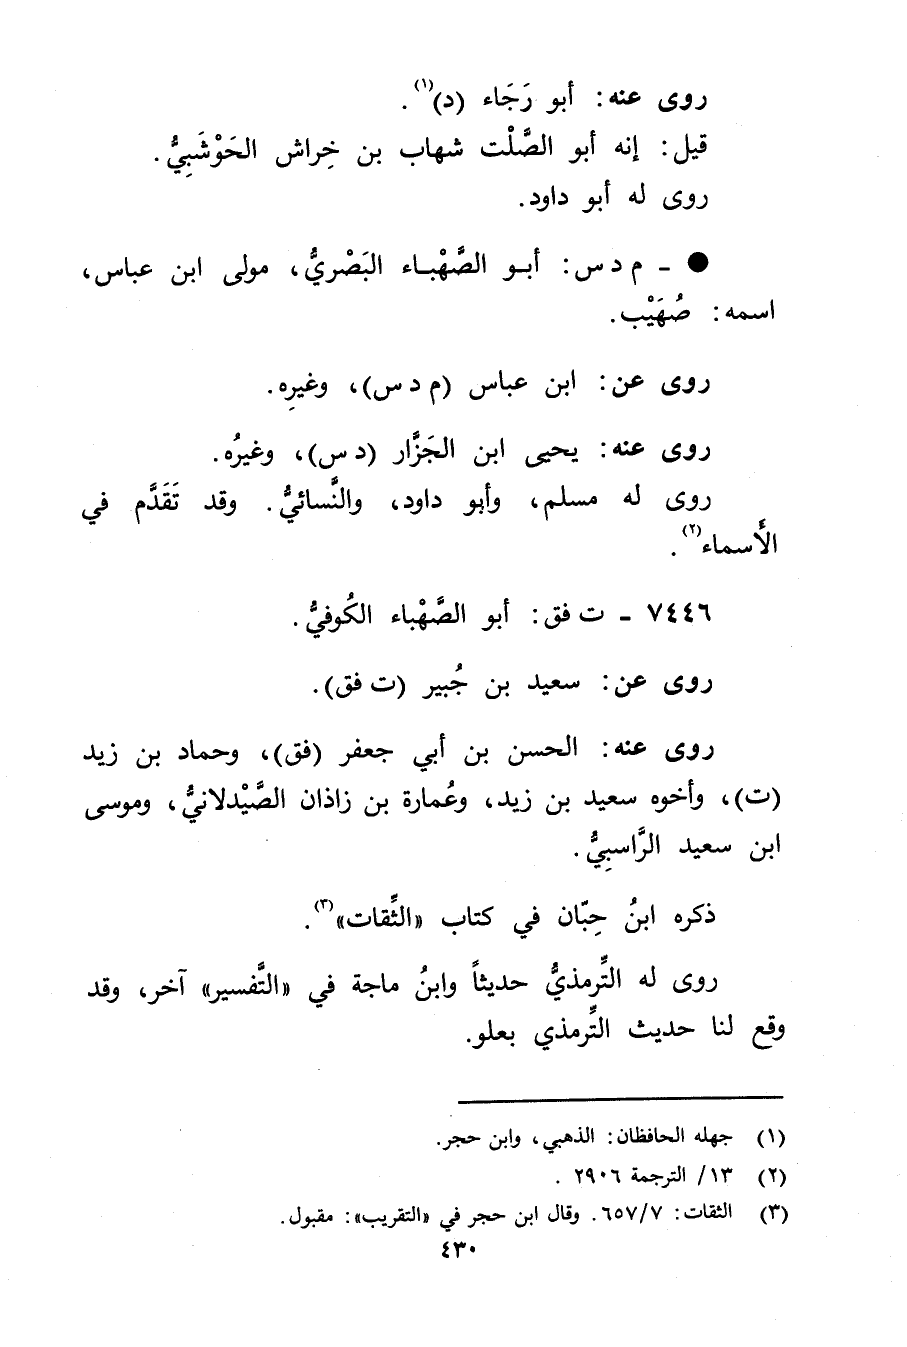 روى عنه: أبو رَجَاء (د)(١).
قيل: إنه أبو الصَّلْت شهاب بن خِراش الحَوْشَبِيُّ.
روى له أبو داود.
● ـ م د س: أبـو الصَّهْبـاء البَصْريُّ، مولى ابن عباس،
اسمه: صُهَيْب.
روى عن: ابن عباس (م د س)، وغيرِه.
روى عنه: يحيى ابن الجَزَّار (د س)، وغيرُه.
روى له مسلم، وأبو داود، والنَّسائيُّ. وقد تَقَدَّم في
الأَسماء(٢).
٧٤٤٦ ـ ت فق: أبو الصَّهْباء الكُوفيُّ.
روى عن: سعيد بن جُبير (ت فق).
روى عنه: الحسن بن أبي جعفر (فق)، وحماد بن زيد
(ت)، وأخوه سعيد بن زيد، وعُمارة بن زاذان الصَّيْدلانيُّ، وموسى
ابن سعيد الرَّاسبِيُّ.
ذكره ابنُ حِبّان في كتاب «الثِّقات»(٣).
روى له التِّرمذيُّ حديثاً وابنُ ماجة في «التَّفسير» آخر، وقد
وقع لنا حديث التِّرمذي بعلو.
(١) جهله الحافظان: الذهبي، وابن حجر.
(٢) ١٣/ الترجمة ٢٩٠٦ .
(٣) الثقات: ٦٥٧/٧. وقال ابن حجر في «التقريب»: مقبول.
٤٣٠